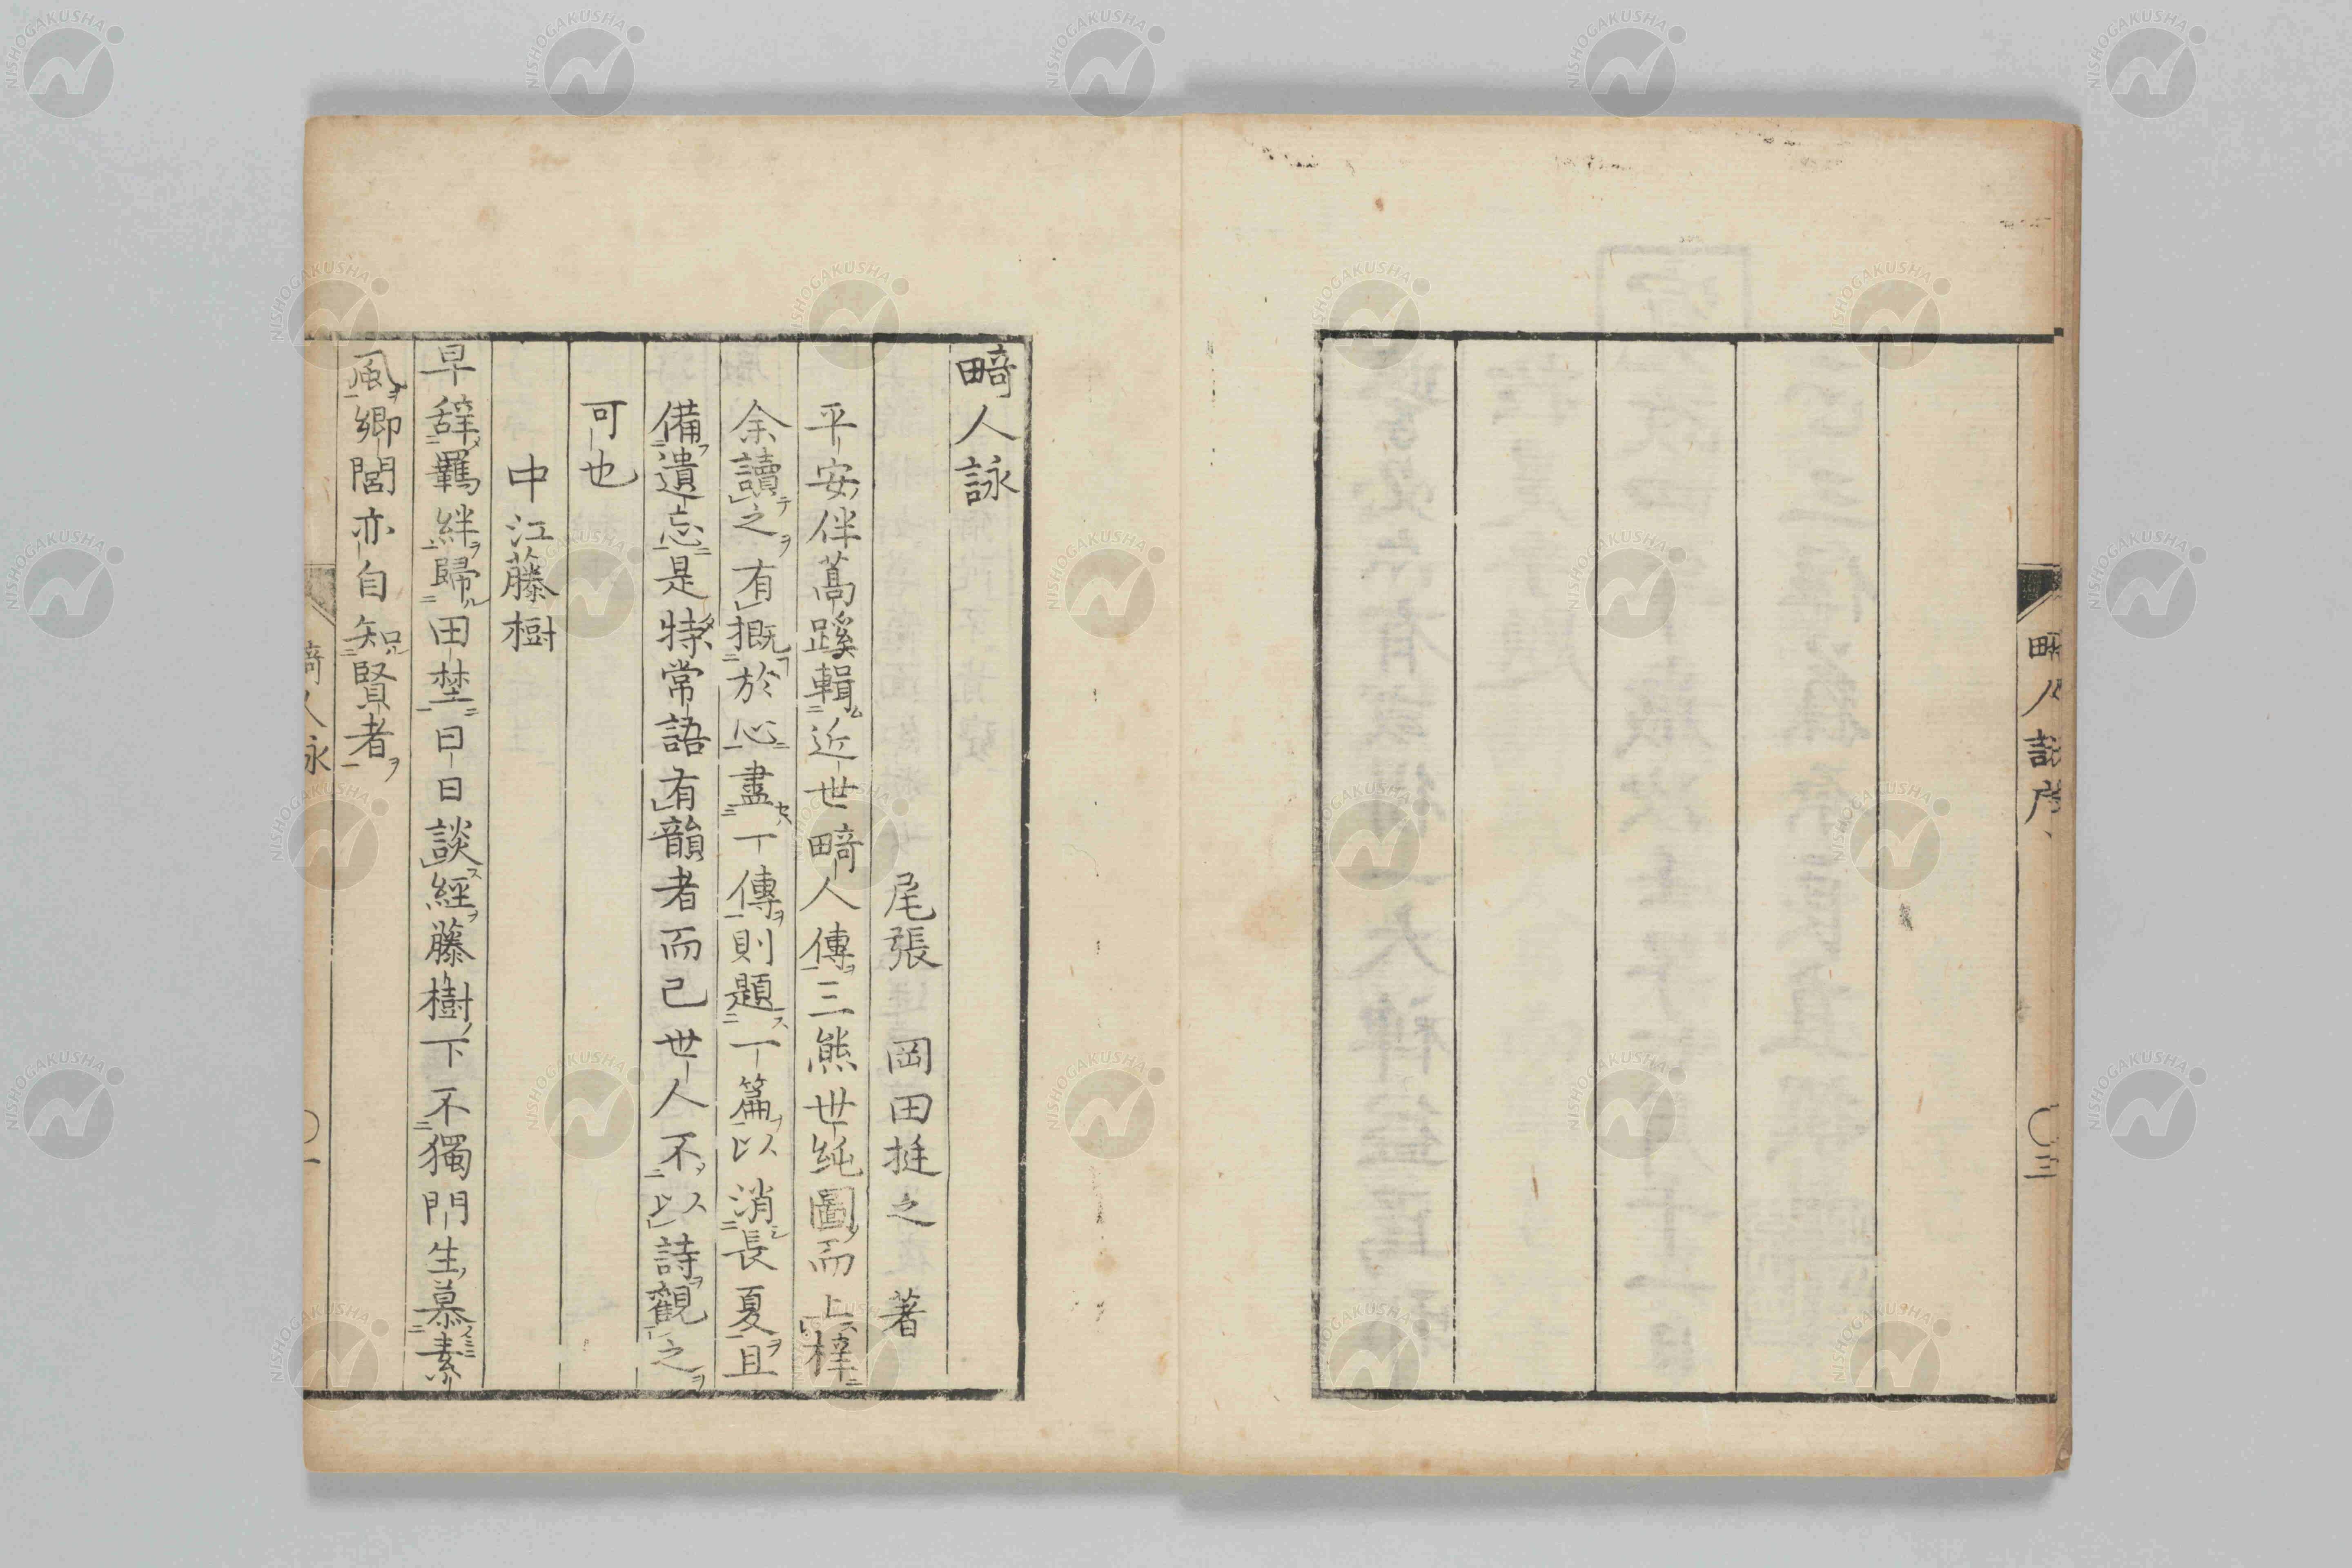 畸人詠序
〇三
畸人詠
尾張 岡田挺之 著
平安伴蒿蹊輯近世畸人傳三熊世純圖而上梓
余讀之有概於心盡一傳則題一篇以消長夏且
備遺忘是特常語有韻者而已世人不以詩觀之
可也
中江藤樹
早辞羈絆歸田埜日日談經藤樹下不獨門生慕素
風鄉閭亦自知賢者
畸人詠
〇一